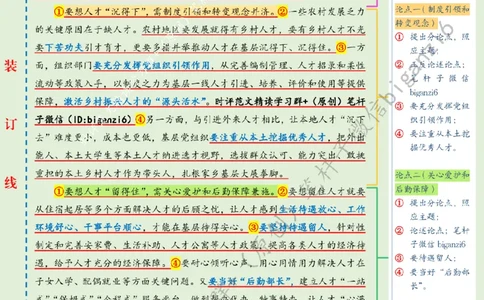 ①要想人才“沉得下”,需制度引领和转变观念并济。②一些农村发展乏力
的关键原因在于缺人才。农村地区要发展就得有乡村人才,要有乡村人才不光
要下苦功夫引才育才,更要多措并举推动人才在基层沉得下、沉得住。③一方
面,组织部门要充分发挥党组织引领作用,从完善编制管理、人才招录和柔性
流动等政策入手,以制度之力为基层一线人才引进、培养、评价和使用等提供
保障,激活乡村振兴人才的“源头活水”。时评范文精读学习群+(原创)笔杆
子微信(ID:biganzi6)④另一方面,与引进外来人才相比,让本地人才“沉下
去”难度更小,成本更低,基层党组织要注重从本土挖掘优秀人才,把外出能
人、本土大学生等本土人才纳进选才视野,选拔群众认可、能力突出、
重担的本土乡村人才作为带头人,扎根家乡基层大展拳脚。
①要想人才“留得住”,需关心爱护和后勤保障兼施。②要想留住人才就要
从住宿起居等多个方面解决人才的后顾之忧,让人才感到生活待遇放心、工作
环境舒心、干事平台顺心,才能在基层待得安心。③要坚持待遇留人,针对性
制定和完善安家费、生活补助、人才公寓等人才政策,提高各类人才的经济待
遇,给予人才充分的经济保障。④要耐心倾听心声、用心用情用力解决人才在
子女入学、配偶就业等方面关键问题。又要当好“后勤部长”,建立人才“一站
装
订
线
论点一(制度引领和
转变观念)
① 提出分论点,照
应主题;
② 论述论点;笔
杆子微信
biganzi6
③ 要充分发挥党组
织引领作用;
④ 要注重从本土挖
掘优秀人才。
论点二(关心爱护和
后勤保障)
① 提出分论点,照
应主题;
② 论述论点;笔杆
子微信 biganzi6
③ 要待遇留人;
④ 要当好“后勤部
长”。